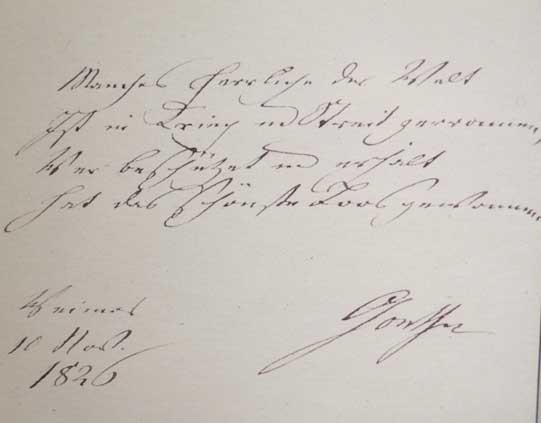 Manches Herrliche der Welt
Ist in Krieg und Streit zerronnen,
Wer beschützet und erhält
hat das schönste Loos gewonnen.
Weimar
10 Nov.
1826
Goethe